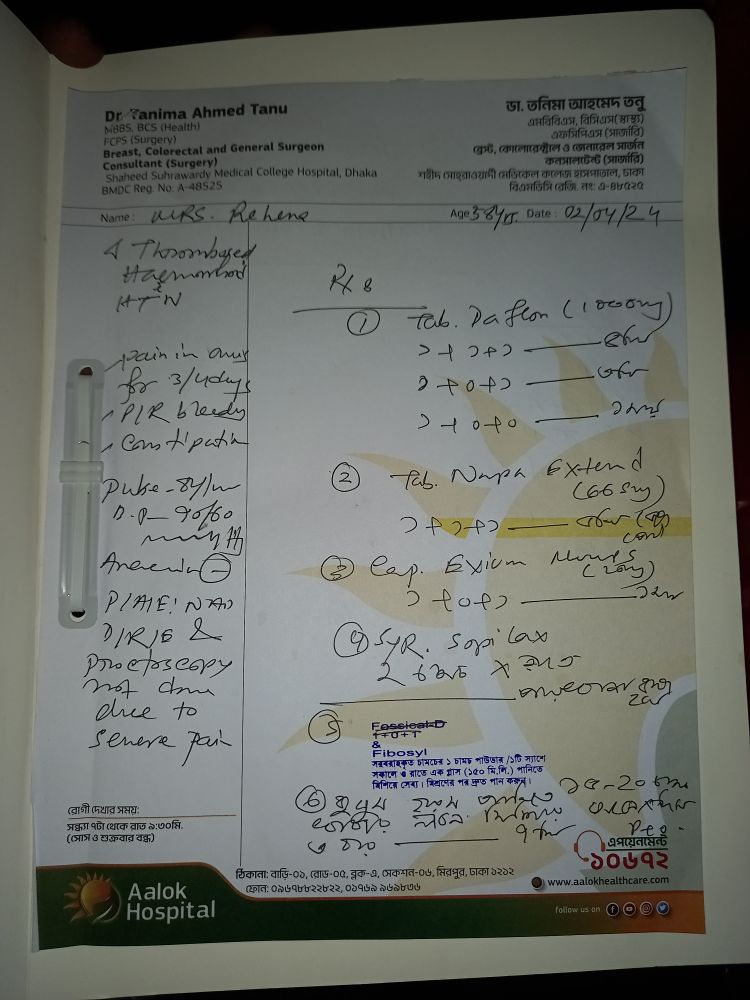 Dr. Tanima Ahmed Tanu
MBBS, BCS (Health)
FCPS (Surgery)
Breast, Colorectal and General Surgeon
Consultant (Surgery)
Shaheed Suhrawardy Medical College Hospital, Dhaka
BMDC Reg. No: A-48525
ডা. তনিমা আহমেদ তনু
এমবিবিএস, বিসিএস (স্বাস্থ্য)
এফসিপিএস (সার্জারি)
ব্রেস্ট, কোলোরেক্টাল ও জেনারেল সার্জন
কনসালটেন্ট (সার্জারি)
শহীদ সোহরাওয়ার্দী মেডিকেল কলেজ হাসপাতাল, ঢাকা
বিএমডিসি রেজি. নং: এ-৪৮৫২৫
Name : MRS. Rehena Age 38yr. Date : 02/04/24
Thrombosed
Haemorrhoid
HTN
pain in anus
for 3/4 days
P/R bleeding
Constipation
Pulse - 84/m
B.P - 90/60
mmHg
Anaemia
P/A/E: NAD
D/R/E &
Proctoscopy
not done
due to
severe pain
Rx
① Tab. Daflon (1000mg)
১+১+১
১+০+১
১+০+০
② Tab. Napa Extend
(665mg)
১+১+১
③ Cap. Exium Mups
(20mg)
১+০+১
④ Syr. Sopilax
২ চামচ X রাতে
⑤ Fossical-D
1+0+1
&
Fibosyl
সরবরাহকৃত চামচের ১ চামচ পাউডার /১টি স্যাশে
সকালে ও রাতে এক গ্লাস (১৫০ মি.লি.) পানিতে
মিশিয়ে সেব্য। মিশ্রণের পর দ্রুত পান করুন।
⑥ ১৫-20
রোগী দেখার সময়:
সন্ধ্যা ৭টা থেকে রাত ৯:৩০মি.
(সোম ও শুক্রবার বন্ধ)
এপয়েনমেন্ট
১০৬৭২
ঠিকানা: বাড়ি-০১, রোড-০৫, ব্লক-এ, সেকশন-০৬, মিরপুর, ঢাকা ১২১২
ফোন: ০৯৬৭৮৮২২৮২২, ০১৭৬৯ ৯৬৯৮৩৬
www.aalokhealthcare.com
Aalok
Hospital
follow us on